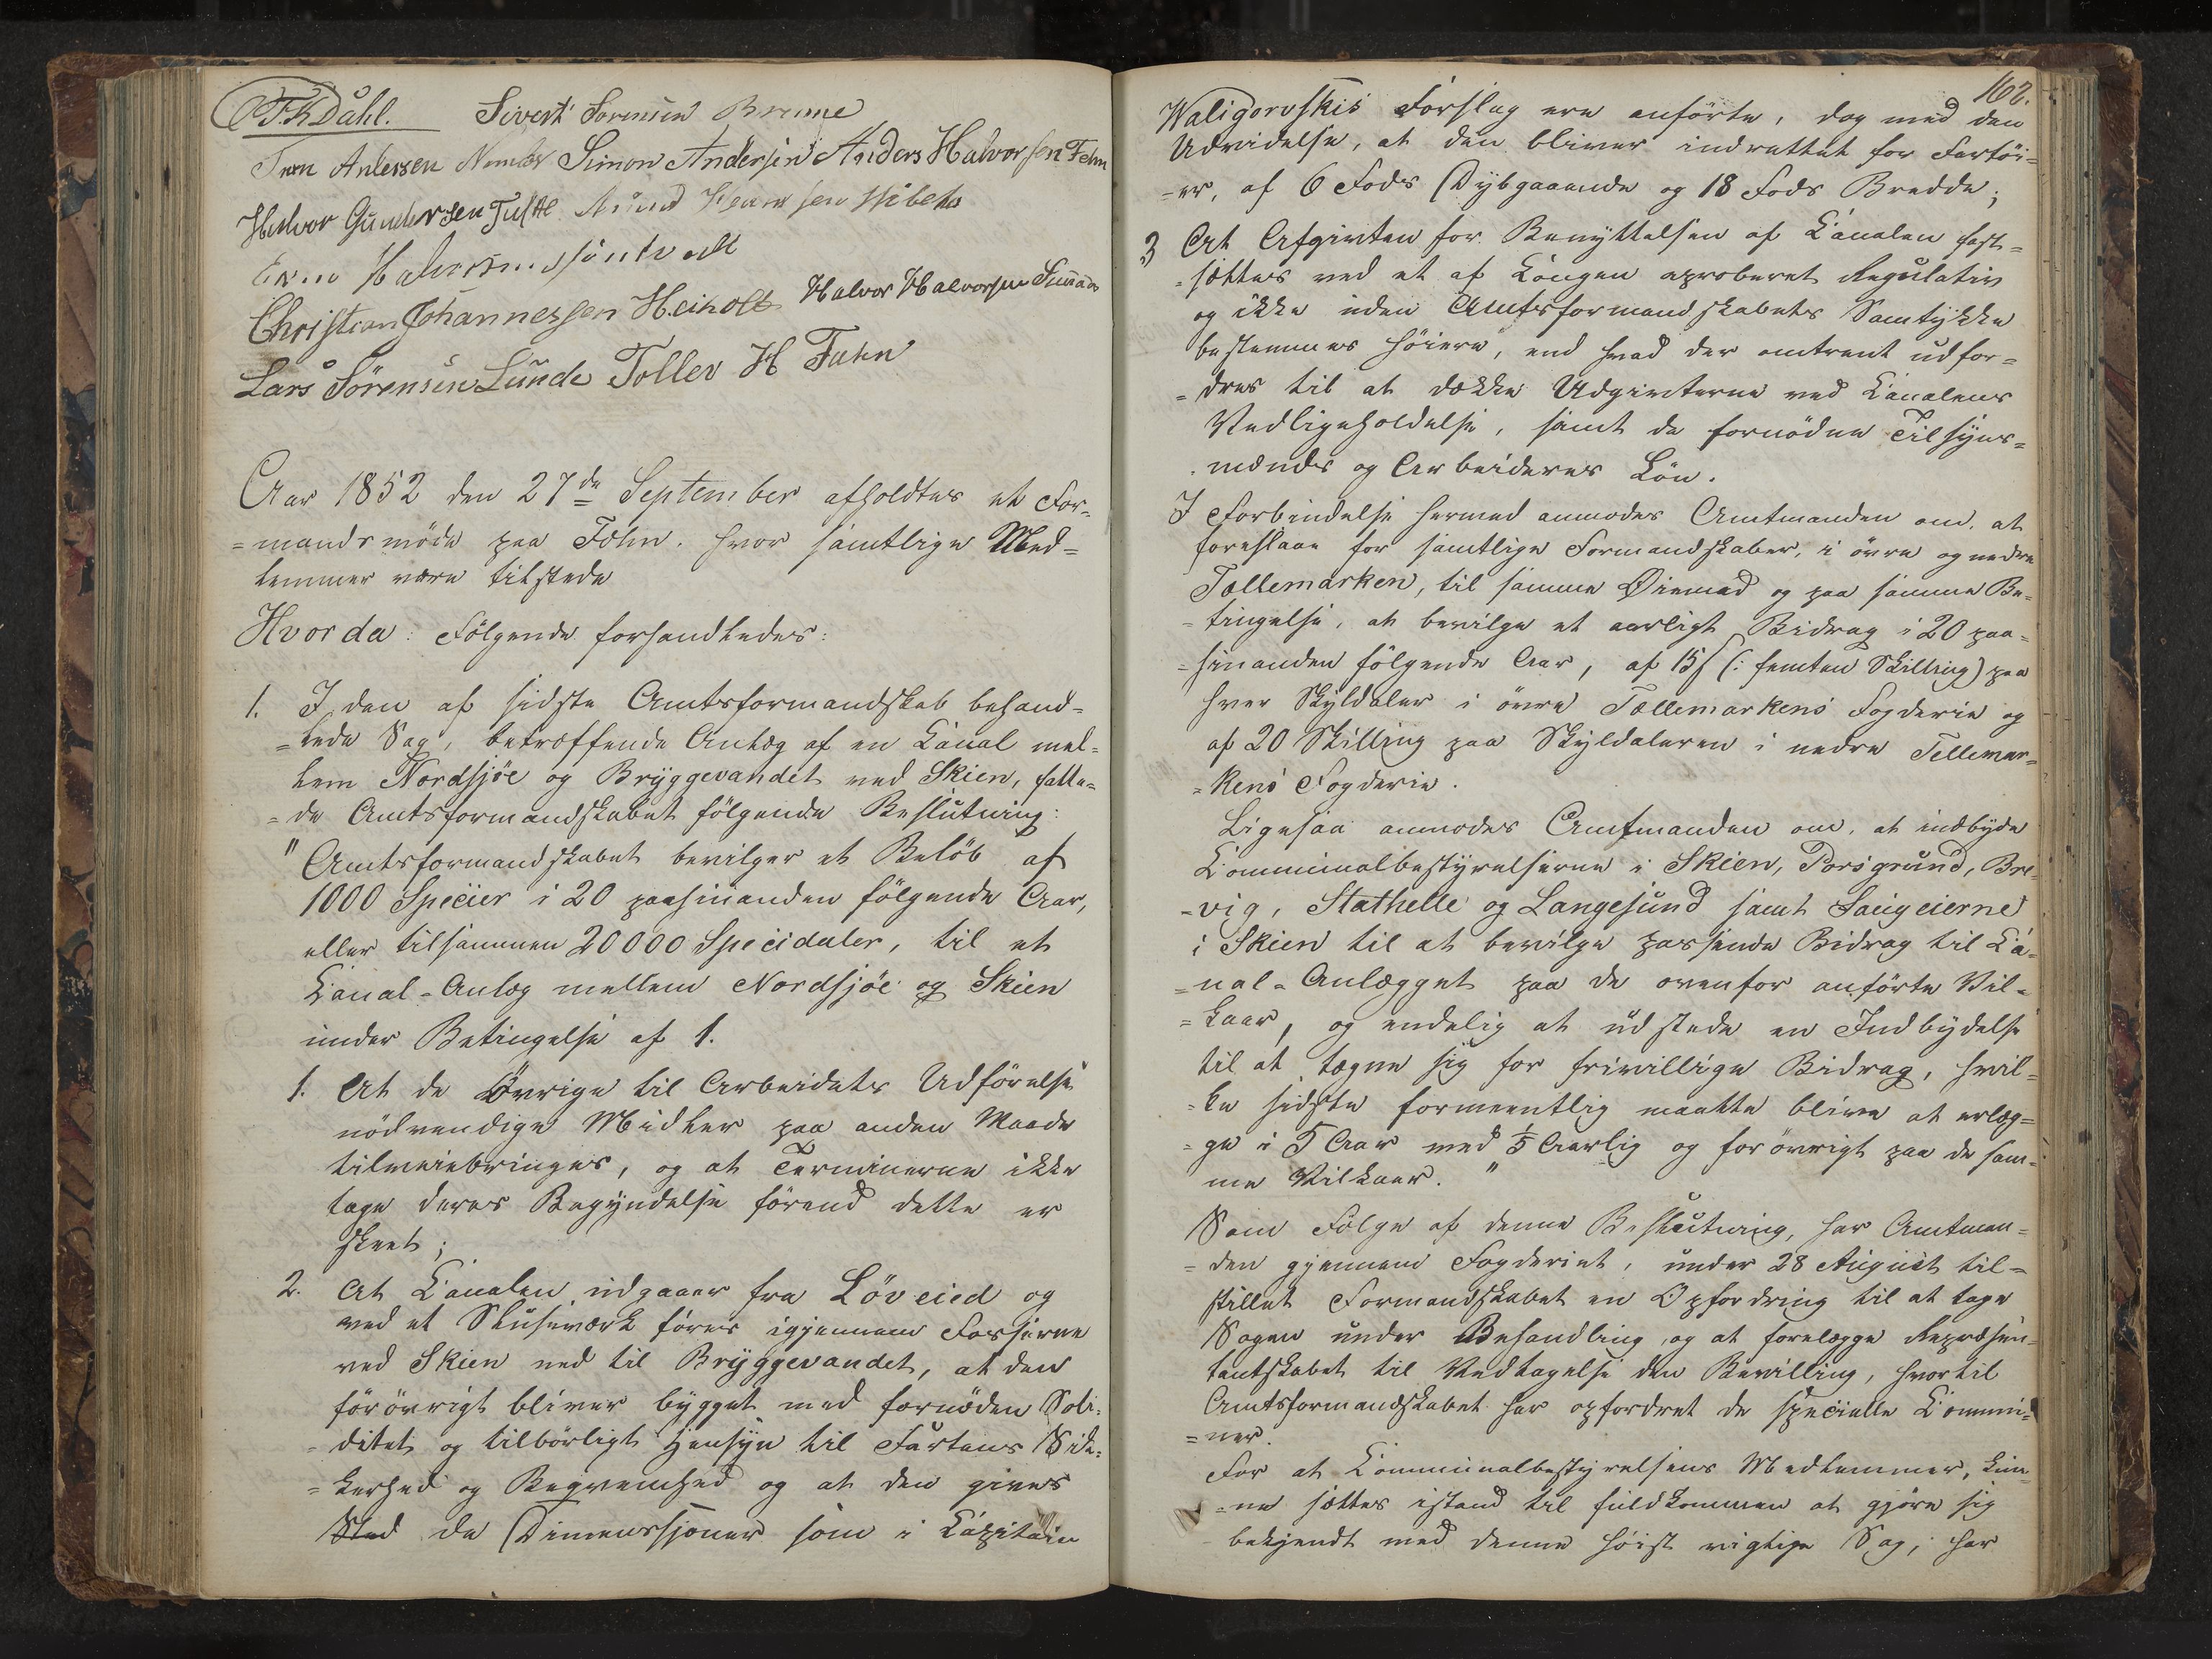 T. K. Dahl. Sivert Sørensen
Anders Halvorsen Simon Andersen
Halvor Gundersen
Christian Johannessen Heiholt Halvor Halvorsen
Lars Sörensen Lunde Tollev H Fahn
Aar 1852 den 27de September afholdtes et For-
=mandsmöde paa Fæhn. hvor samtlige Med=
lemmer vare tilstede
Hvorda: Fölgende forhandledes:
1. I den af sidste Amtsformandskab behand=
=lede Sag, betræffende Anlæg af en Canal mel=
lem Nordsjöe og Bryggevandet ved Skien, fatte=
=de Amtsformandskabet fölgende Beslutning:
" Amtsformandskabet bevilger et Belöb af
1000 Specier i 20 paahinanden fölgende Aar,
eller tilsammen 20000 Specidaler, til et
Canal-Anlæg mellem Nordsjöe og Skien
under Betingelse af 1.
1. At de Övrige til Arbeidets Udförelse
nödvendige Midler paa anden Maade
tilveiebringes, og at Terminerne ikke
tage deres Begyndelse förend dette er
skeet;
2. At Canalen udgaaer fra Löveied og
ved et Sluseværk föres igjennem Fosserne
ved Skien ned til Bryggevandet, at den
förövrigt bliver bygget med fornöden Soli=
=ditet og tilbörligt Hensyn til Fartens Sik=
=kerhed og Beqvemhed og at den gives
Sted de Dimenssjoner som i Capitain
162.
Waligorskis Forslag ere anförte, dog med den
Udvidelse, at den bliver indrettet for Fartöi=
=er, af 6 Fods Dybgaaende og 18 Fods Bredde;
3 At Afgivten for Benyttelsen af Canalen fast=
=sættes ved et af Kongen aproberet Regulativ
og ikke uden Amtsformandskabets Samtykke
bestemmes höiere, end hvad der omtrent udfor=
=dres til at dække Udgivterne ved Canalens
Vedligeholdelse, samt de fornödne Tilsyns=
=mænds og Arbeideres Lön.
I Forbindelse hermed anmodes Amtmanden om, at
foreslaae for samtlige Formandskaber, i övre og nedre
Tellemarken, til samme Øiemed og paa samme Be=
=tingelse, at bevilge et aarligt Bidrag i 20 paa=
=hinanden fölgende Aar, af 15 s (: femten Skilling) paa
hver Skyldaler i övre Tellemarkens Fogderie og
af 20 Skilling paa Skyldaleren i nedre Tellemar=
=kens Fogderie.
Ligesaa anmodes Amtmanden om, at indbyde
Communalbestyrelserne i Skien, Porsgrund, Bre=
=vig, Stathelle og Langesund samt Saugeierne
i Skien til at bevilge passende Bidrag til Ca=
=nal-Anlægget paa de ovenfor anförte Vil=
=kaar, og endelig at udstede en Indbydelse
til at tegne sig for frivillige Bidrag, hvil=
=ke sidste formeentlig maatte blive at erlæg=
=ge i 5 Aar med 1/5 Aarlig og for övrigt paa de sam=
me Vilkaar. "
Som Fölge af denne Beslutning, har Amtman=
=den gjennem Fogderiet, under 28 August til=
stillet Formandskabet en Opfordring til at tage
Sagen under Behandling, og at forelægge Repræsen=
tantskabet til Vedtagelse den Bevilling, hvortil
Amtsformandskabet har opfordret de specielle Commu=
=ner.
For at Communalbestyrelsens Medlemmer, kun
=ne sættes istand til fuldkommen at gjöre sig
bekjendt med denne höist vigtige Sag, har